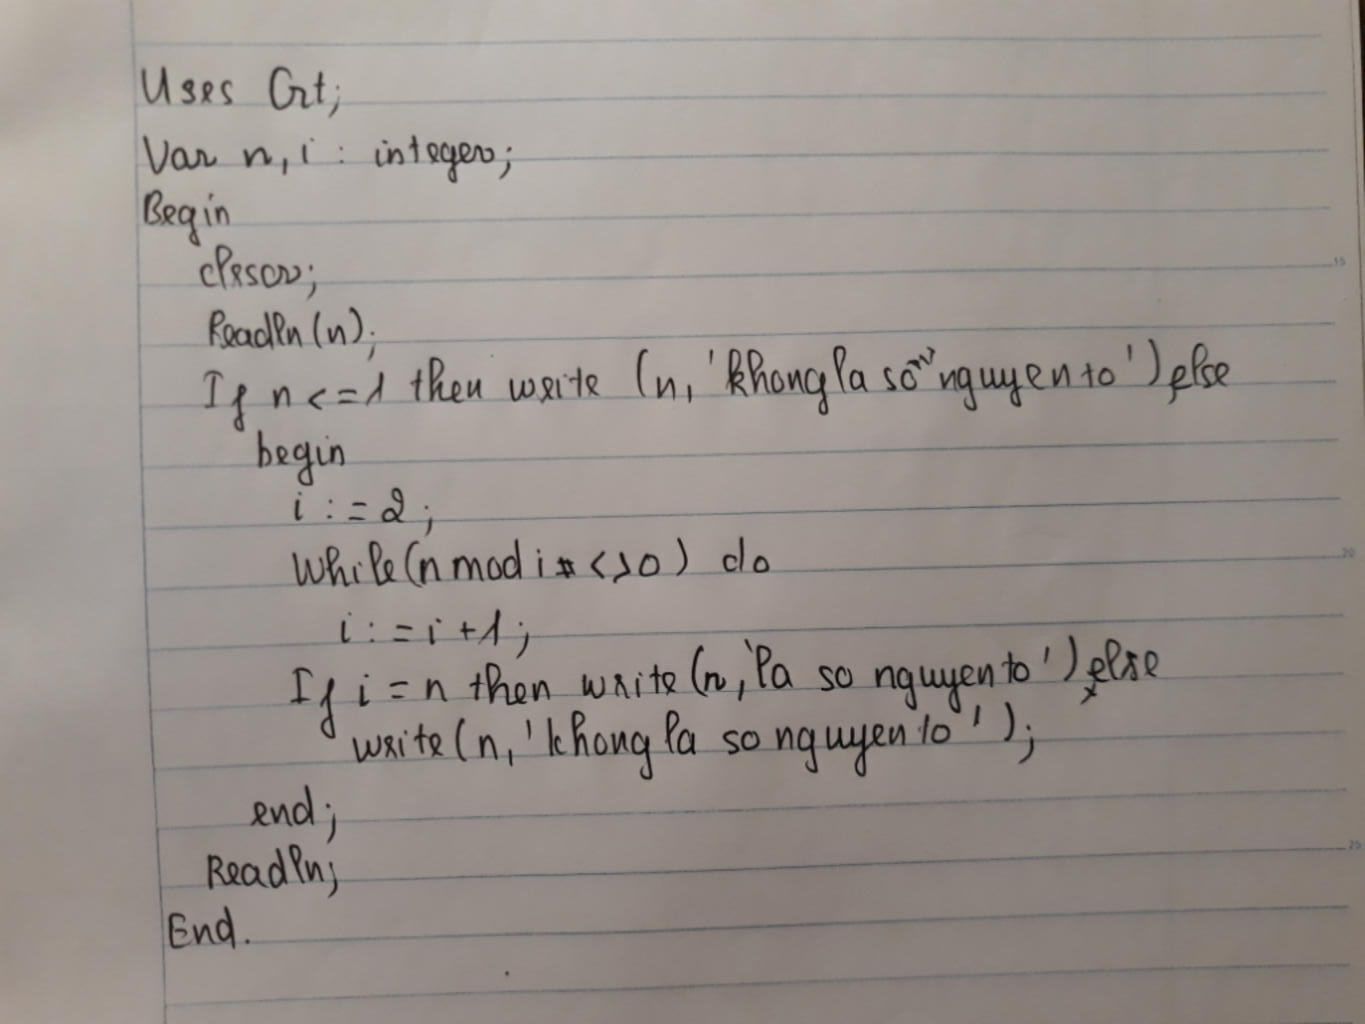 Uses Crt;
Var n, i : integer;
Begin
clrscr;
Readln (n);
If n <= 1 then write (n, 'khong la so nguyen to') else
begin
i := 2;
While (n mod i <> 0) do
i := i + 1;
If i = n then write (n, 'la so nguyen to') else
write (n, 'khong la so nguyen to');
end;
Readln;
End.